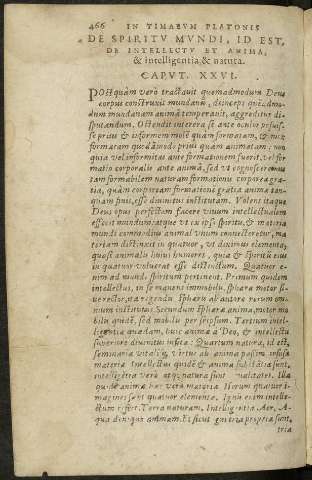 466 IN TIMAEVM PLATONIS
DE SPIRITV MVNDI, ID EST,
DE INTELLECTV ET ANIMA,
& intelligentia & natura.
CAPVT. XXVI.
POstquàm verò tractauit quemadmodum Deus
corpus construxit mundanū, deinceps quēadmo-
dum mundanam animā temperauit, aggreditur di-
sputandum. Ostendit interea se ante
se prius & informem molē quàm formatam, & nō
formatam quodāmodo prius quàm animatam: non
quia vel informitas ante formationem fuerit, vel for
matio corporalis ante animā, sed vt cognosceremus
tam formabilem naturam formationis corporeæ gra-
tia, quàm corpoream formationē gratia animæ tan-
quam finis, esse diuinitus institutam. Volens itaque
Deus opus perfectum facere vnum intellectualem
effecit mundum: atque vt is ipse spiritu, & materia
mundi commodius animal vnum connecteretur, ma
teriam distinxit in quatuor, vt diximus elementa,
quasi animalis huius humores, quia & spiritū eius
in quatuor voluerat esse distinctum. Quatuor e-
nim ad mundi spiritum pertinent. Primum quidem
intellectus, in se manens immobilis, sphæræ motor li
uerector,
num institutus. Secundum sphæræ anima, motor mo
bilis quidē, sed mobilis per seipsum. Tertium intel-
ligentia quædam, huic animæ à Deo, & intellectu
superiore diuinitus infusa: Quartum natura, id est,
seminaria vitalisq; virtus ab anima passim infusa
materiæ Intellectus quidē & anima substātiæ sunt,
intelligētia verò atq; natura sunt qualitates. Illa
quidē animæ hæc verò materiæ Horum quatuor i-
magines sunt quatuor elementa. Ignis enim intelle-
ctum refert. Terra naturam. Intelligētia Aer. A-
qua deniq; animam. Et sicut
tria